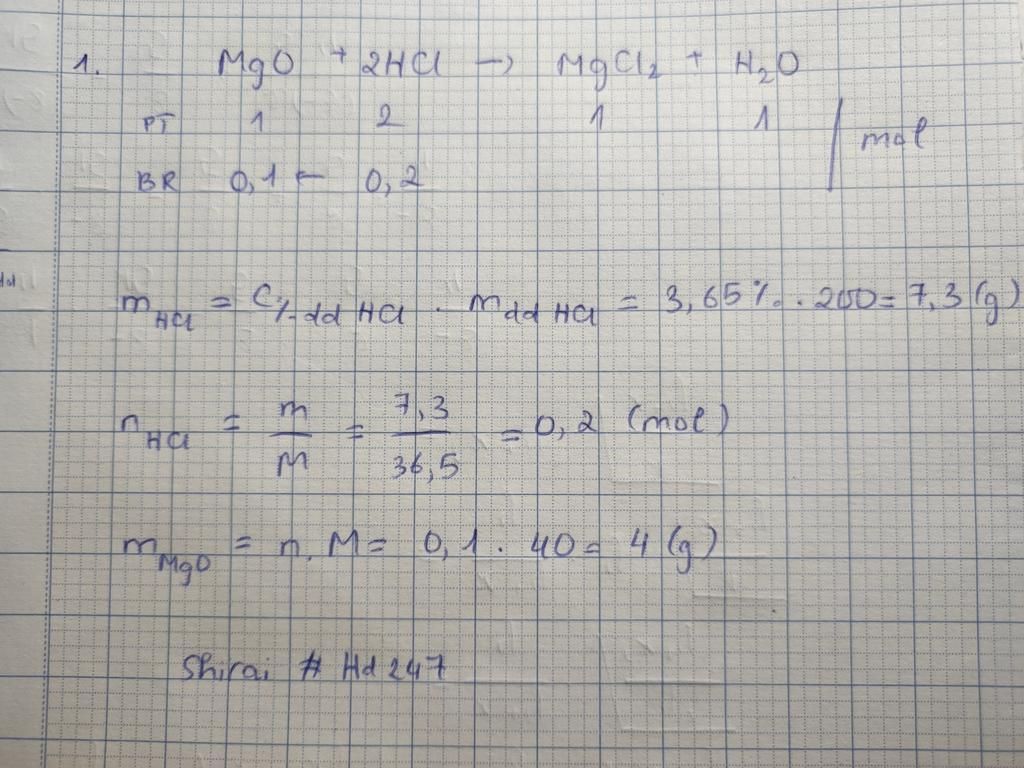 1. MgO + 2HCl → MgCl₂ + H₂O
PT 1 2 1 1 mol
BR 0,1 ← 0,2
m HCl = C% dd HCl . m dd HCl = 3,65% . 200 = 7,3 (g)
n HCl = m/M = 7,3/36,5 = 0,2 (mol)
m MgO = n. M = 0,1 . 40 = 4 (g)
Shirai # Hd247